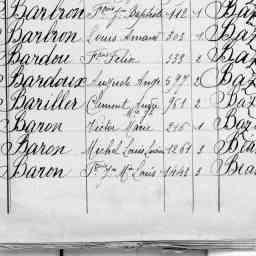 Bartron Fçois Jn Baptiste 182 1 Ba
Bartron Louis Armand 303 1 Baz
Bardou Fçois Félix 339 2 Baz
Bardoux Auguste Ange 597 2 Baz
Bariller Clément Ange Mie 961 2 Baz
Baron Victor Marie 215 1 Baz
Baron Michel Louis 1261 3 Béa
Baron Pre Yes Mie Louis 1443 3 Béa